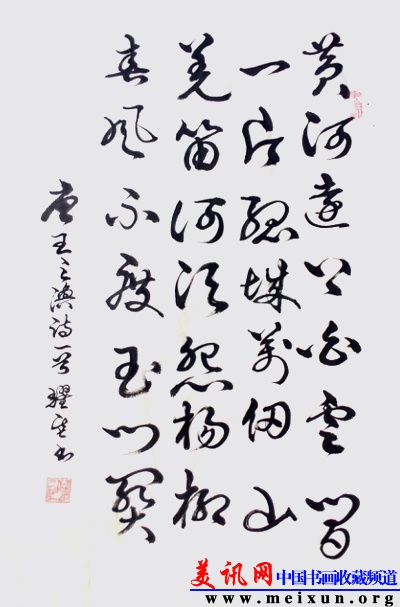 黄河遠上白雲間
一片孤城萬仞山
羌笛何须怨楊柳
春风不度玉门関
唐王之涣诗一首 书
美讯网 中国书画收藏频道
www.meixun.org